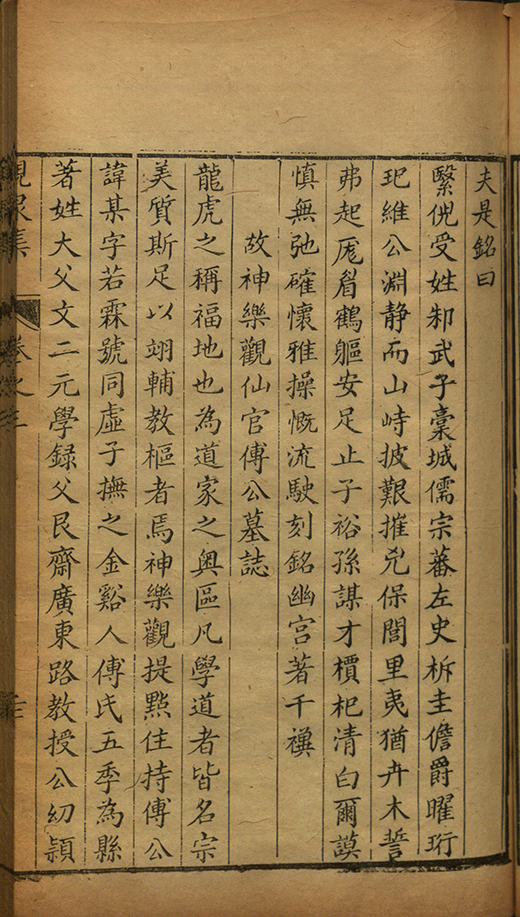 夫是銘曰
繄侊受姓邾武子槀城儒宗蕃左史析圭儋爵曜珩
玘維公淵静而山峙披艱摧兇保閭里夷猶卉木誓
弗起厖眉鶴軀安足止子裕孫謀才檟杞清白爾謨
慎無弛確懷雅操慨流駛刻銘幽宫著千禩
故神樂觀仙官傅公墓誌
龍虎之稱福地也為道家之奥區凡學道者皆名宗
美質斯足以翊輔教樞者焉神樂觀提點住持傅公
諱某字若霖號同虛子撫之金谿人傅氏五季為縣
著姓大父文二元學録父艮齋廣東路教授公幼穎
峴泉集
卷之三